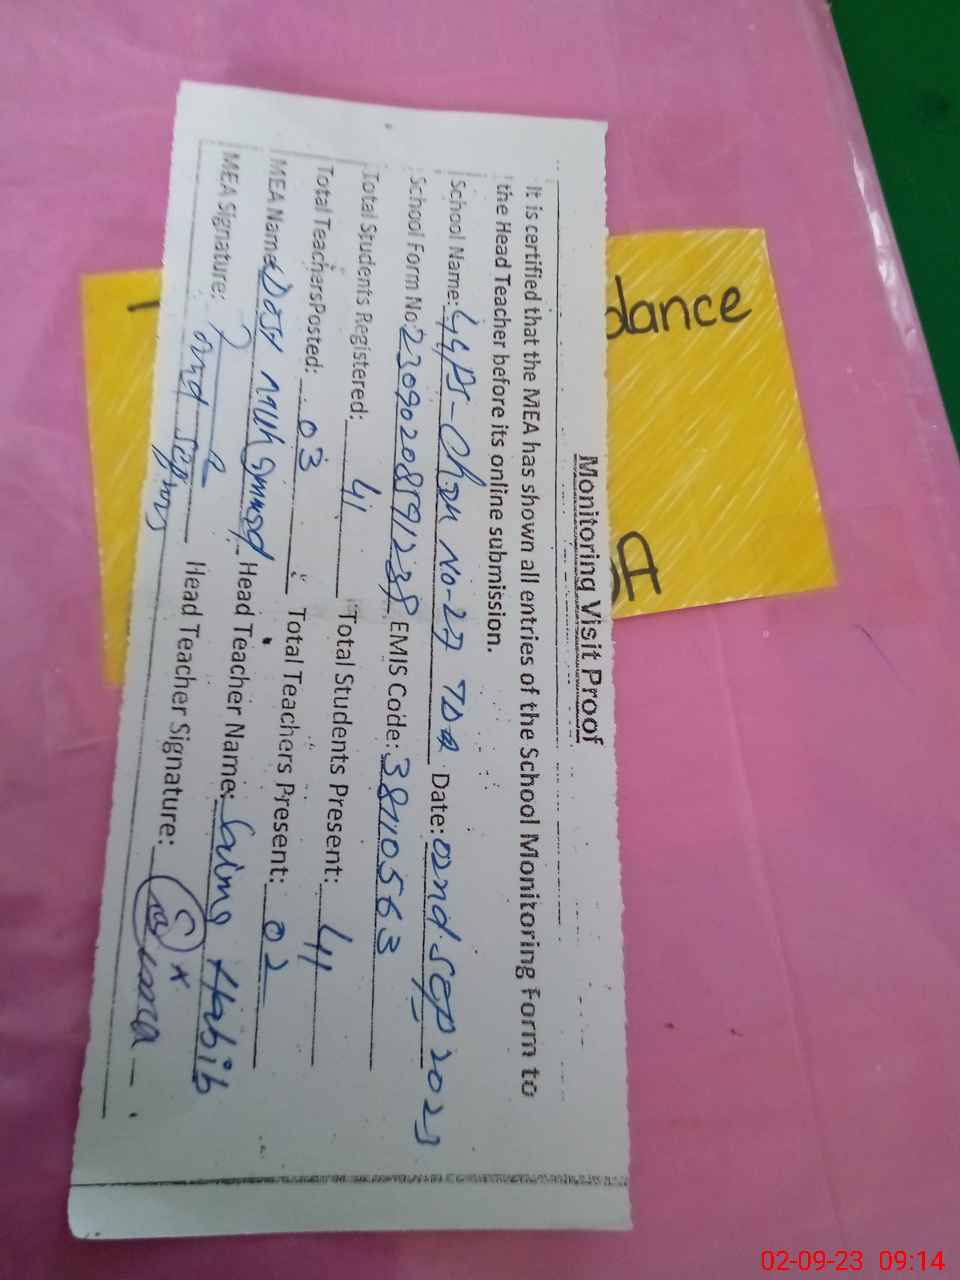 Monitoring Visit Proof
It is certified that the MEA has shown all entries of the School Monitoring Form to
the Head Teacher before its online submission.
School Name: GGPS-Chak No-27 TDA Date: 02nd sep 2023
School Form No: EMIS Code: 38110563
Total Students Registered: 41 Total Students Present: 41
Total TeachersPosted: 03 Total Teachers Present: 02
MEA Name: Head Teacher Name: Saima Habib
MEA Signature: Head Teacher Signature:
dance
02-09-23 09:14